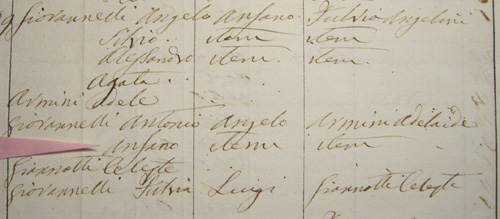 9 Giovannelli Angelo Ansano Fulvia Angelini
Silvio item item
Alessandro item item
Agata
Armini Adele
Giovannelli Antonio Angelo Armini Adelaide
Ansano item item
Giannotti Celeste
Giovannelli Fulvia Luigi Giannotti Celeste